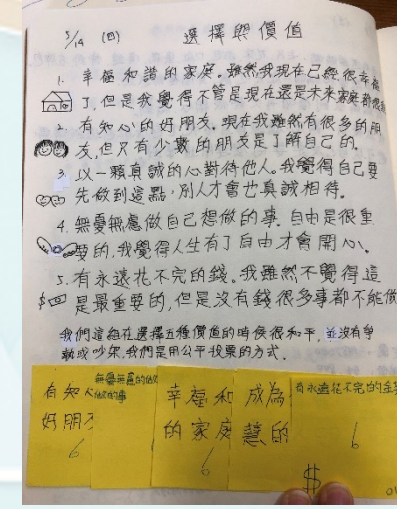 5/14 (四) 選擇與價值
1. 幸福和諧的家庭。雖然我現在已經很幸福
了,但是我覺得不管是現在還是未來家庭都很
2. 有知心的好朋友。現在我雖然有很多的朋
友,但只有少數的朋友是了解自己的。
3. 以一顆真誠的心對待他人。我覺得自己要
先做到這點,別人才會也真誠相待。
4. 無憂無慮做自己想做的事。自由是很重
要的,我覺得人生有了自由才會開心。
5. 有永遠花不完的錢。我雖然不覺得這
$ 是最重要的,但是沒有錢很多事都不能做
我們這組在選擇五種價值的時候很和平,並沒有爭
執或吵架,我們是用公平投票的方式。
有知
好朋
6
無憂無慮的做
做的事
幸福和
的家庭
6
成為
慧的
有永遠花不完的金
6
$